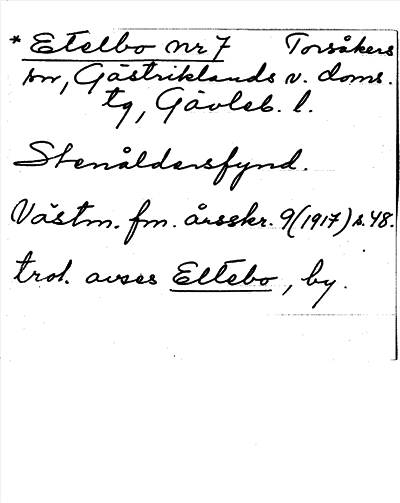 * Etelbo nr 7 Torsåkers
sn, Gästriklands v. doms.
tg, Gävleb. l.
Stenåldersfynd.
Västm. fm. årsskr. 9(1917) s. 48.
trol. avses Eltebo, by.